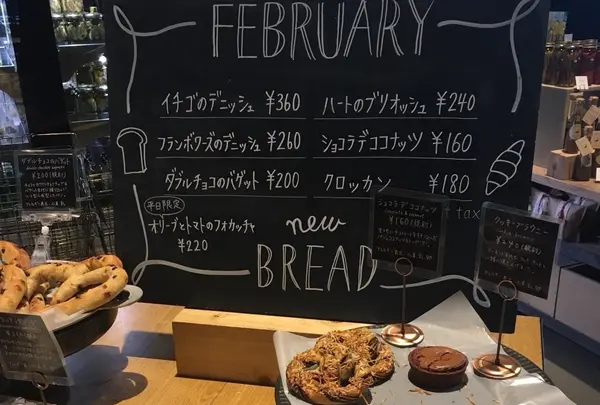 FEBRUARY
イチゴのデニッシュ ¥360
フランボワーズのデニッシュ ¥260
ダブルチョコのバゲット ¥200
平日限定
オリーブとトマトのフォカッチャ
¥220
ハートのブリオッシュ ¥240
ショコラデココナッツ ¥160
クロッカン ¥180
+ tax
new
BREAD
ダブルチョコのバゲット
¥200(税抜)
ショコラデココナッツ
¥160(税抜)
クッキーブラウニー